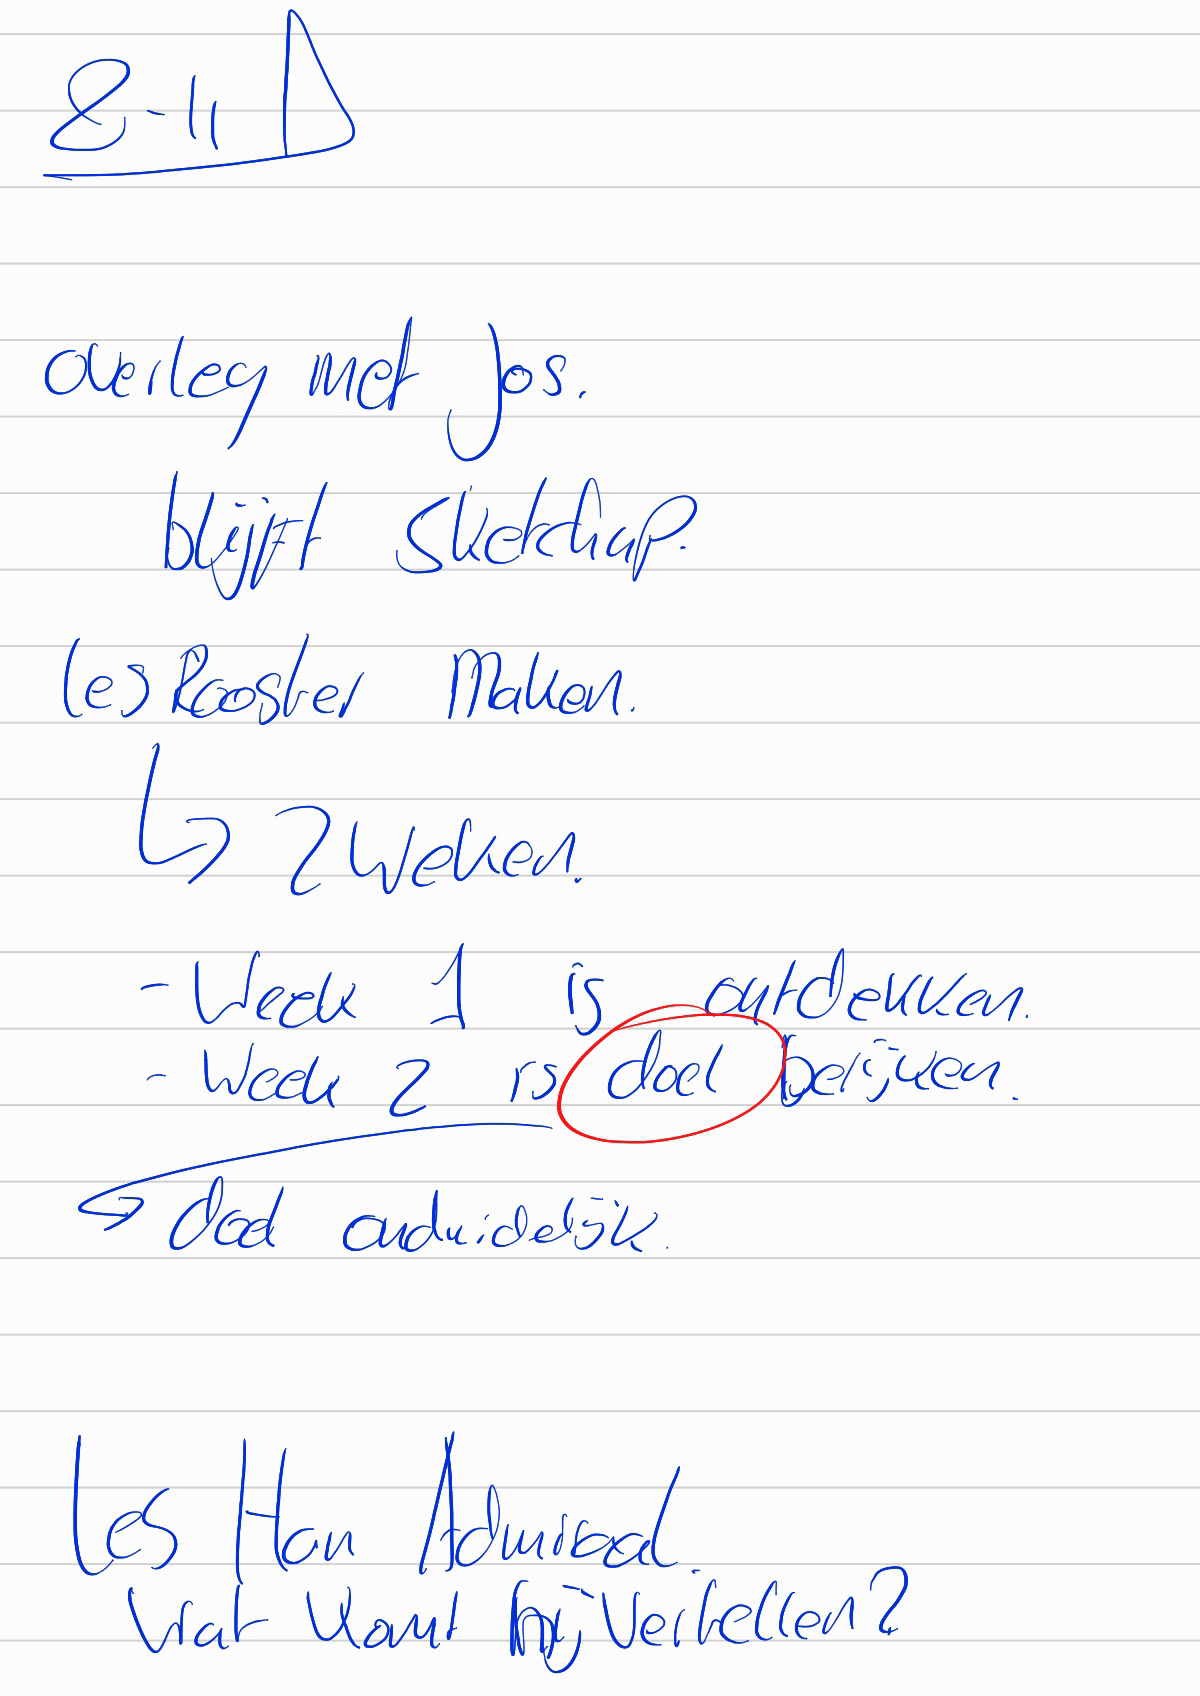 8-11 D
overleg met Jos.
blijft Sketchup.
les Rooster Maken.
2 Weken.
- Week 1 is ontdekken.
- Week 2 is doel berijken.
doel onduidelijk.
Les Han Admiraal.
Wat komt hij Vertellen?